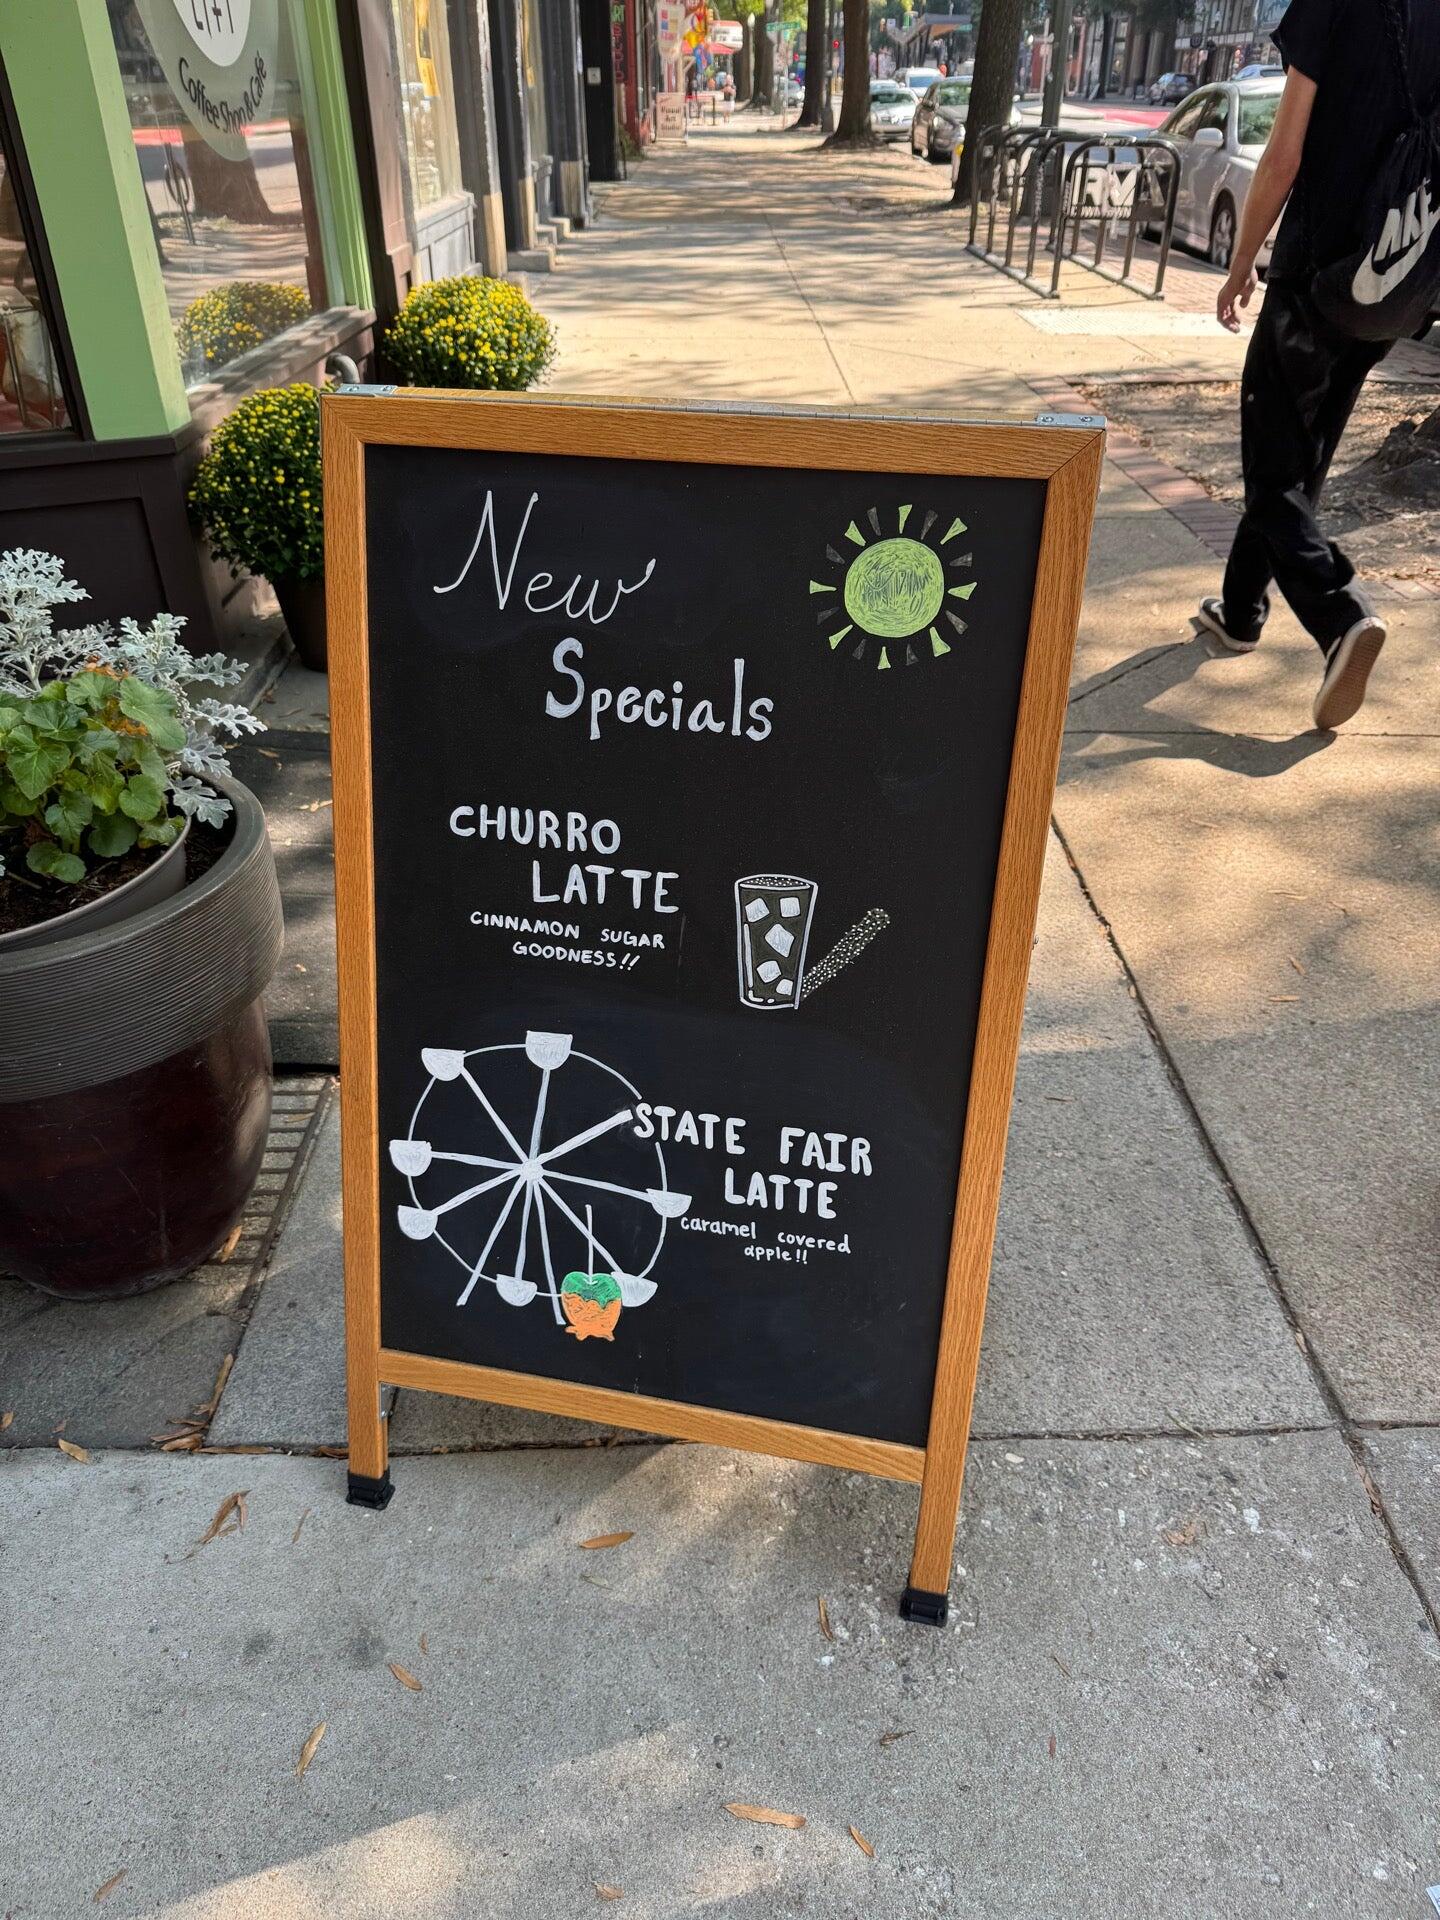 LIFT
Coffee Shop & Café
New
Specials
CHURRO
LATTE
CINNAMON SUGAR
GOODNESS!!
STATE FAIR
LATTE
caramel covered
apple!!
NIKE